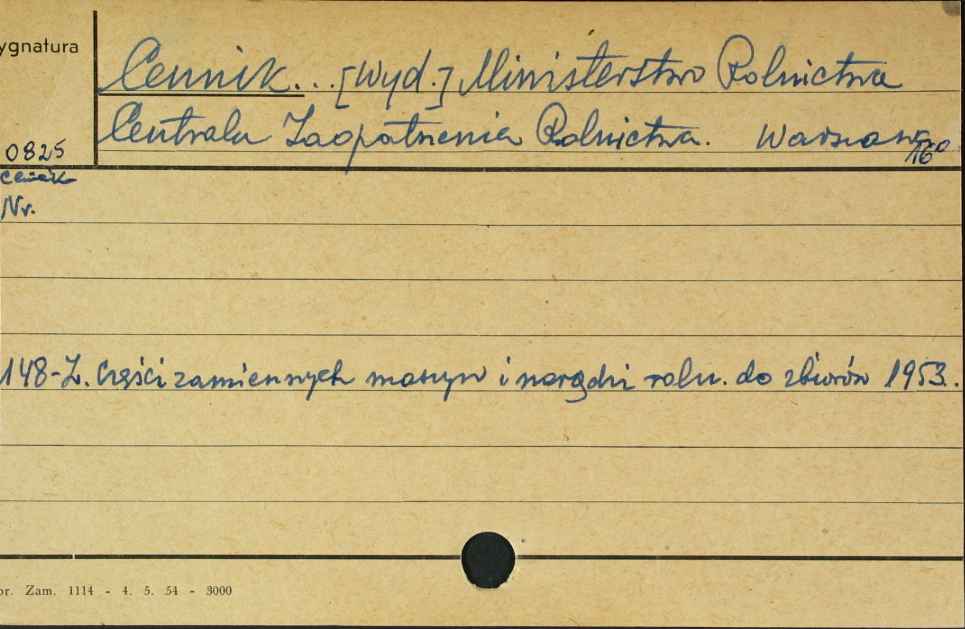 ygnatura
Cennik... [Wyd.] Ministerstwo Rolnictwa
Centrala Zaopatrzenia Rolnictwa. Warszawa
0825
16°
Nr.
148-Z. Części zamiennych maszyn i narzędzi roln. do zbiorów 1953.
or. Zam. 1114 - 4. 5. 54 - 3000